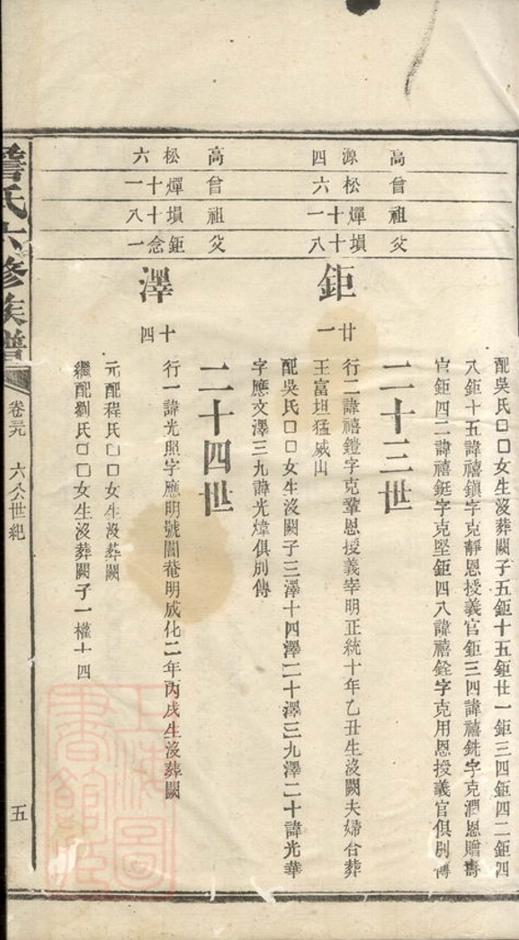 配吳氏□□女生沒闕子五鉅十五鉅廿一鉅三四鉅四二鉅四
八鉅十五諱禧鎮字克靜恩授義官鉅三四諱禧銑字克潤恩贈壽
官鉅四二諱禧鋌字克堅鉅四八諱禧銓字克用恩授義官俱別傳
二十三世
高 源四
曾 松六
祖 燀十一
父 塤十八
鉅廿一
行二諱禧鎧字克鞏恩授義宰明正統十年乙丑生沒闕夫婦合葬
王富坦猛威山
配吳氏□□女生沒闕子三澤十四澤二十澤三九澤二十諱光華
字應文澤三九諱光煒俱別傳
二十四世
高 松六
曾 燀十一
祖 塤十八
父 鉅念一
澤十四
行一諱光照字應明號誾菴明成化二年丙戌生沒葬闕
元配程氏□□女生沒葬闕
繼配劉氏□□女生沒葬闕子一權十四
詹氏六修族譜
卷之元 六公世紀
五
上海圖書館藏